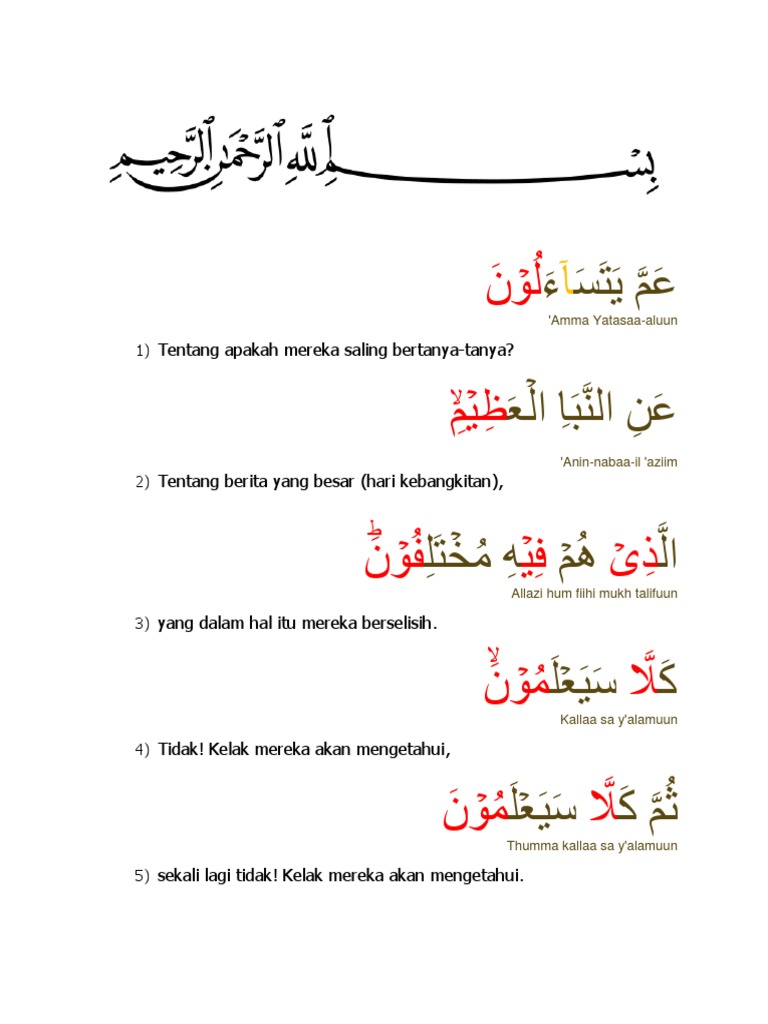 بِسْمِ ٱللَّهِ ٱلرَّحْمَٰنِ ٱلرَّحِيمِ
عَمَّ يَتَسَآءَلُوْنَ
'Amma Yatasaa-aluun
1) Tentang apakah mereka saling bertanya-tanya?
عَنِ النَّبَاِ الْعَظِيْمِۙ
'Anin-nabaa-il 'aziim
2) Tentang berita yang besar (hari kebangkitan),
الَّذِیْ هُمْ فِيْهِ مُخْتَلِفُوْنَؕ
Allazi hum fiihi mukh talifuun
3) yang dalam hal itu mereka berselisih.
كَلَّا سَيَعْلَمُوْنَۙ
Kallaa sa y'alamuun
4) Tidak! Kelak mereka akan mengetahui,
ثُمَّ كَلَّا سَيَعْلَمُوْنَ
Thumma kallaa sa y'alamuun
5) sekali lagi tidak! Kelak mereka akan mengetahui.